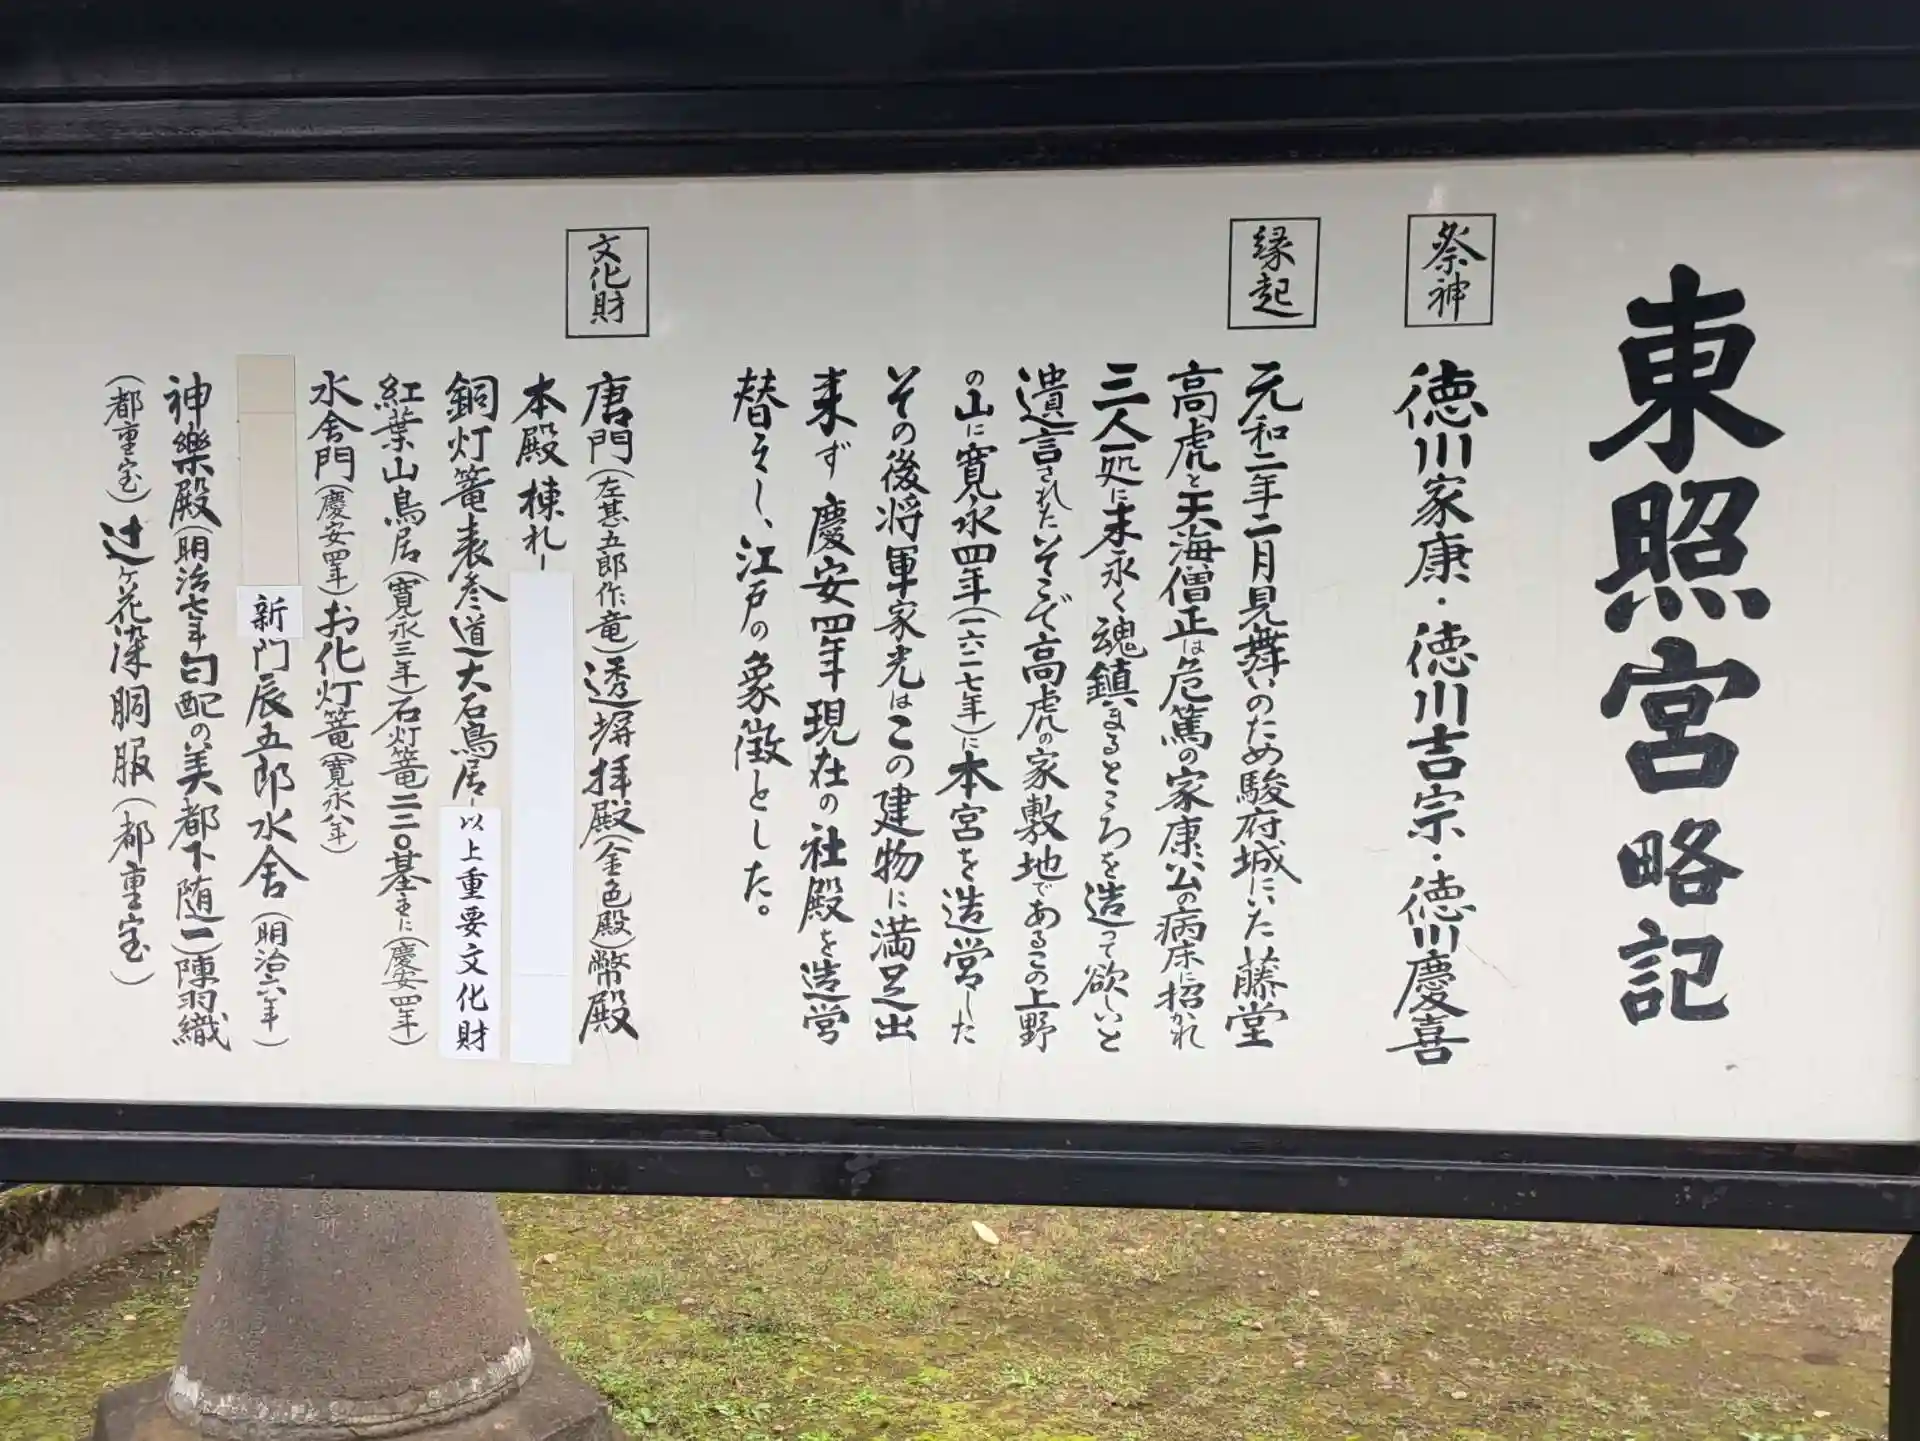 東照宮略記
祭神
徳川家康・徳川吉宗・徳川慶喜
縁起
元和二年二月見舞いのため駿府城にいた藤堂
高虎と天海僧正は危篤の家康公の病床に招かれ
三人一処に末永く魂鎮まるところを造って欲しいと
遺言されたいそこで高虎の家敷地であるこの上野
の山に寛永四年(一六二七年)に本宮を造営した
その後将軍家光はこの建物に満足出
来ず慶安四年現在の社殿を造営
替えし、江戸の象徴とした。
文化財
唐門(左甚五郎作竜)透塀拝殿(金色殿)幣殿
本殿棟札ー
銅灯篭表参道大石鳥居ー以上重要文化財
紅葉山鳥居(寛永三年)石灯篭二二〇基主に(慶安四年)
水舎門(慶安四年)お化灯篭(寛永八年)
新門辰五郎水舎(明治六年)
神樂殿(明治七年匂配の美都下随一)陣羽織
(都重宝)辻ヶ花染胴服(都重宝)